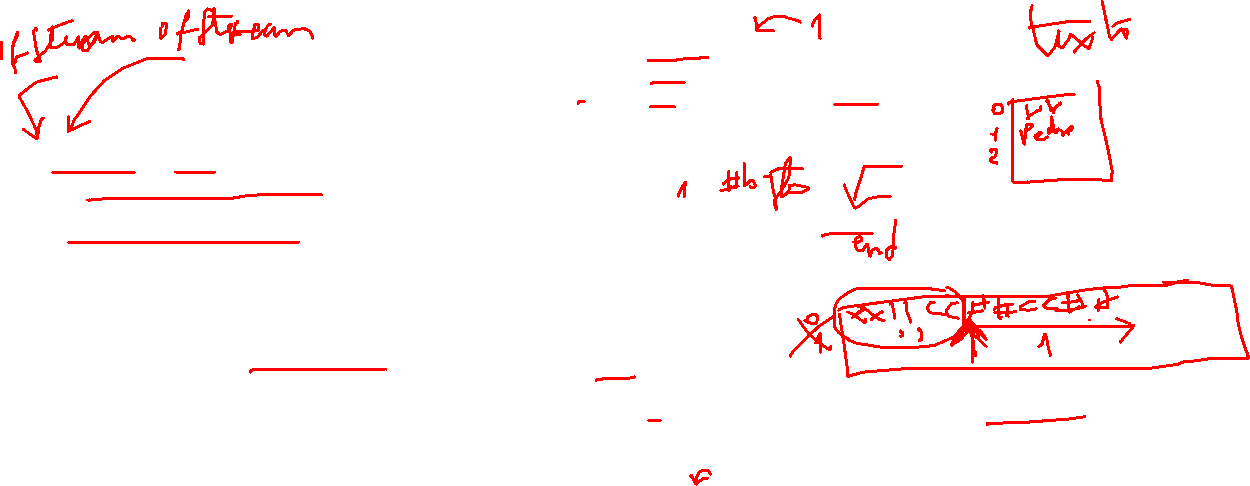 ifstream ofstream
1
texto
0
1 Pedro
2
1 #b
end
0 xx!! CC##CC##
1
1